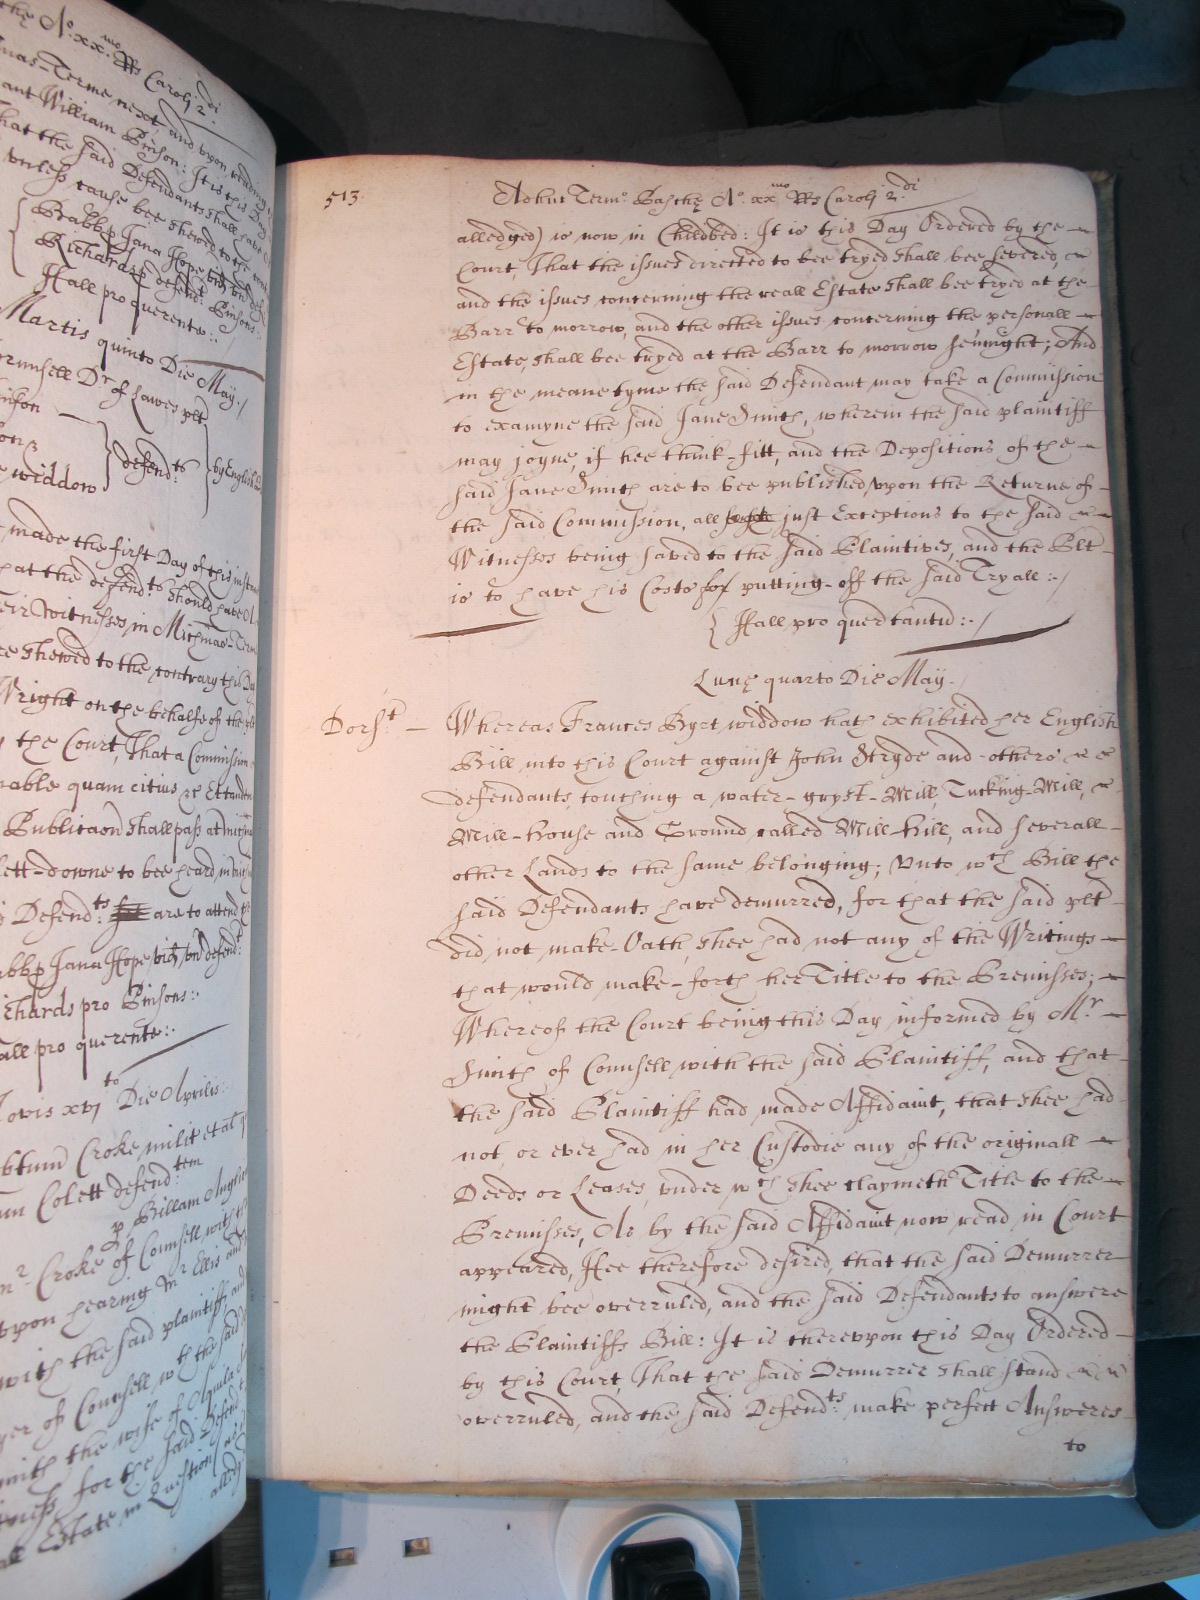 the Aº. xx.mo RRs Caroli 2.di
mas-Terme next, and upon reading
ant William Brison: It is this Day
hat the said Defendants shall have
unless cause bee shewed to the
Brabbp Jana Hope vid
Richards p defend: Brisons:
Hall pro querente:./
Martis quinto Die May./
Dr. of Lawes plt
defend:ts
by English
widdow
made the first Day of this instant
hat the defend:ts should have
eir Witnesses in Michmas-Terme
ee shewed to the contrary this Day
Wright on the behalfe of the plt
the Court, That a Commission
nable quam citius
Publicaon shall pass at
ett-downe to bee heard
Defend:ts are to attend
abbp Jana Hope vid defend:
ichards pro Brisons:.
all pro querente:.
Jovis xvjto Die Aprilis:
Croke milit et al
Colett defend:tem
p Billam Anglic
Mr. Croke of Counsell with
upon hearing Mr Ellis and
with the said plaintiff, and
of Counsell wth the said
Smith the wife of
for the said Defend
Estate in Question
513
Adhuc Termo. Paschę Aº. xxmo RRs Caroli 2.di
alledged) is now in Childbed: It is this Day Ordered by the
Court, That the issues directed to bee tryed shall bee severed,
and the issues concerning the reall Estate shall bee tryed at the
Barr to morrow, and the other issues concerning the personall
Estate, shall bee tryed at the Barr to morrow senight; And
in the meane tyme the said Defendant may take a Commission
to examyne the said Jane Smith, wherein the said plaintiff
may joyne, if hee think-fitt, and the Depositions of the
said Jane Smith are to bee published, upon the Returne of
the said Commission, all just Exceptions to the said
Witnesses being saved to the said Plaintives, and the Plt
is to have his Costs for putting-off the said Tryall:./
Hall pro quer
Lunę quarto Die May./
Dorst. Whereas Frances Byrt widdow hath exhibited her English
Bill into this Court against John Stryde and others
defendants, touching a water-gryst-Mill, Tucking-Mill,
Mill-house and Ground called Mill-hill, and severall
other Lands to the same belonging; Unto wch Bill the
said Defendants have demurred, for that the said plt
did not make Oath, shee had not any of the Writings
that would make-forth her Title to the Premisses;
Whereof the Court being this Day informed by Mr.
Smith of Counsell with the said Plaintiff, and that
the said Plaintiff had made Affidavit, that shee had
not, or ever had in her Custodie any of the originall
Deeds or Leases, under wch shee claymeth Title to the
Premisses, As by the said Affidavit now read in Court
appeared, Hee therefore desired, that the said Demurrer
might bee overruled, and the said Defendants to answere
the Plaintiffs Bill: It is thereupon this Day Ordered
by this Court, That the said Demurrer shall stand
overruled, and the said Defend:ts make perfect Answeres
to